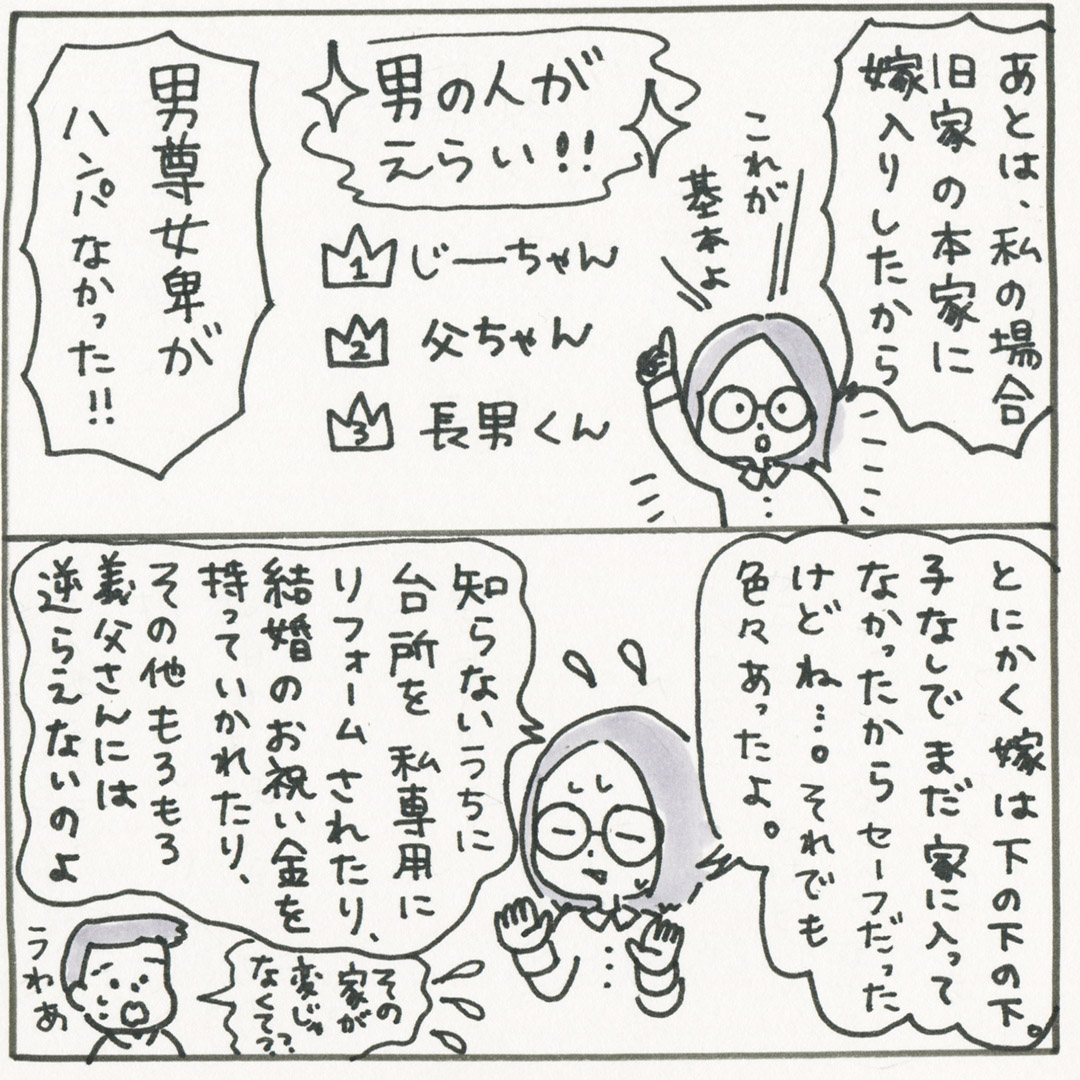 あとは、私の場合
旧家の本家に
嫁入りしたから
これが
基本よ
男の人が
えらい!!
1 じーちゃん
2 父ちゃん
3 長男くん
男尊女卑が
ハンパなかった!!
とにかく嫁は下の下の下。
子なしでまだ家に入って
なかったからセーフだった
けどね…。それでも
色々あったよ。
知らないうちに
台所を私専用に
リフォームされたり、
結婚のお祝い金を
持っていかれたり、
その他もろもろ
義父さんには
逆らえないのよ
その
家が
変じゃ
なくて??
うわあ